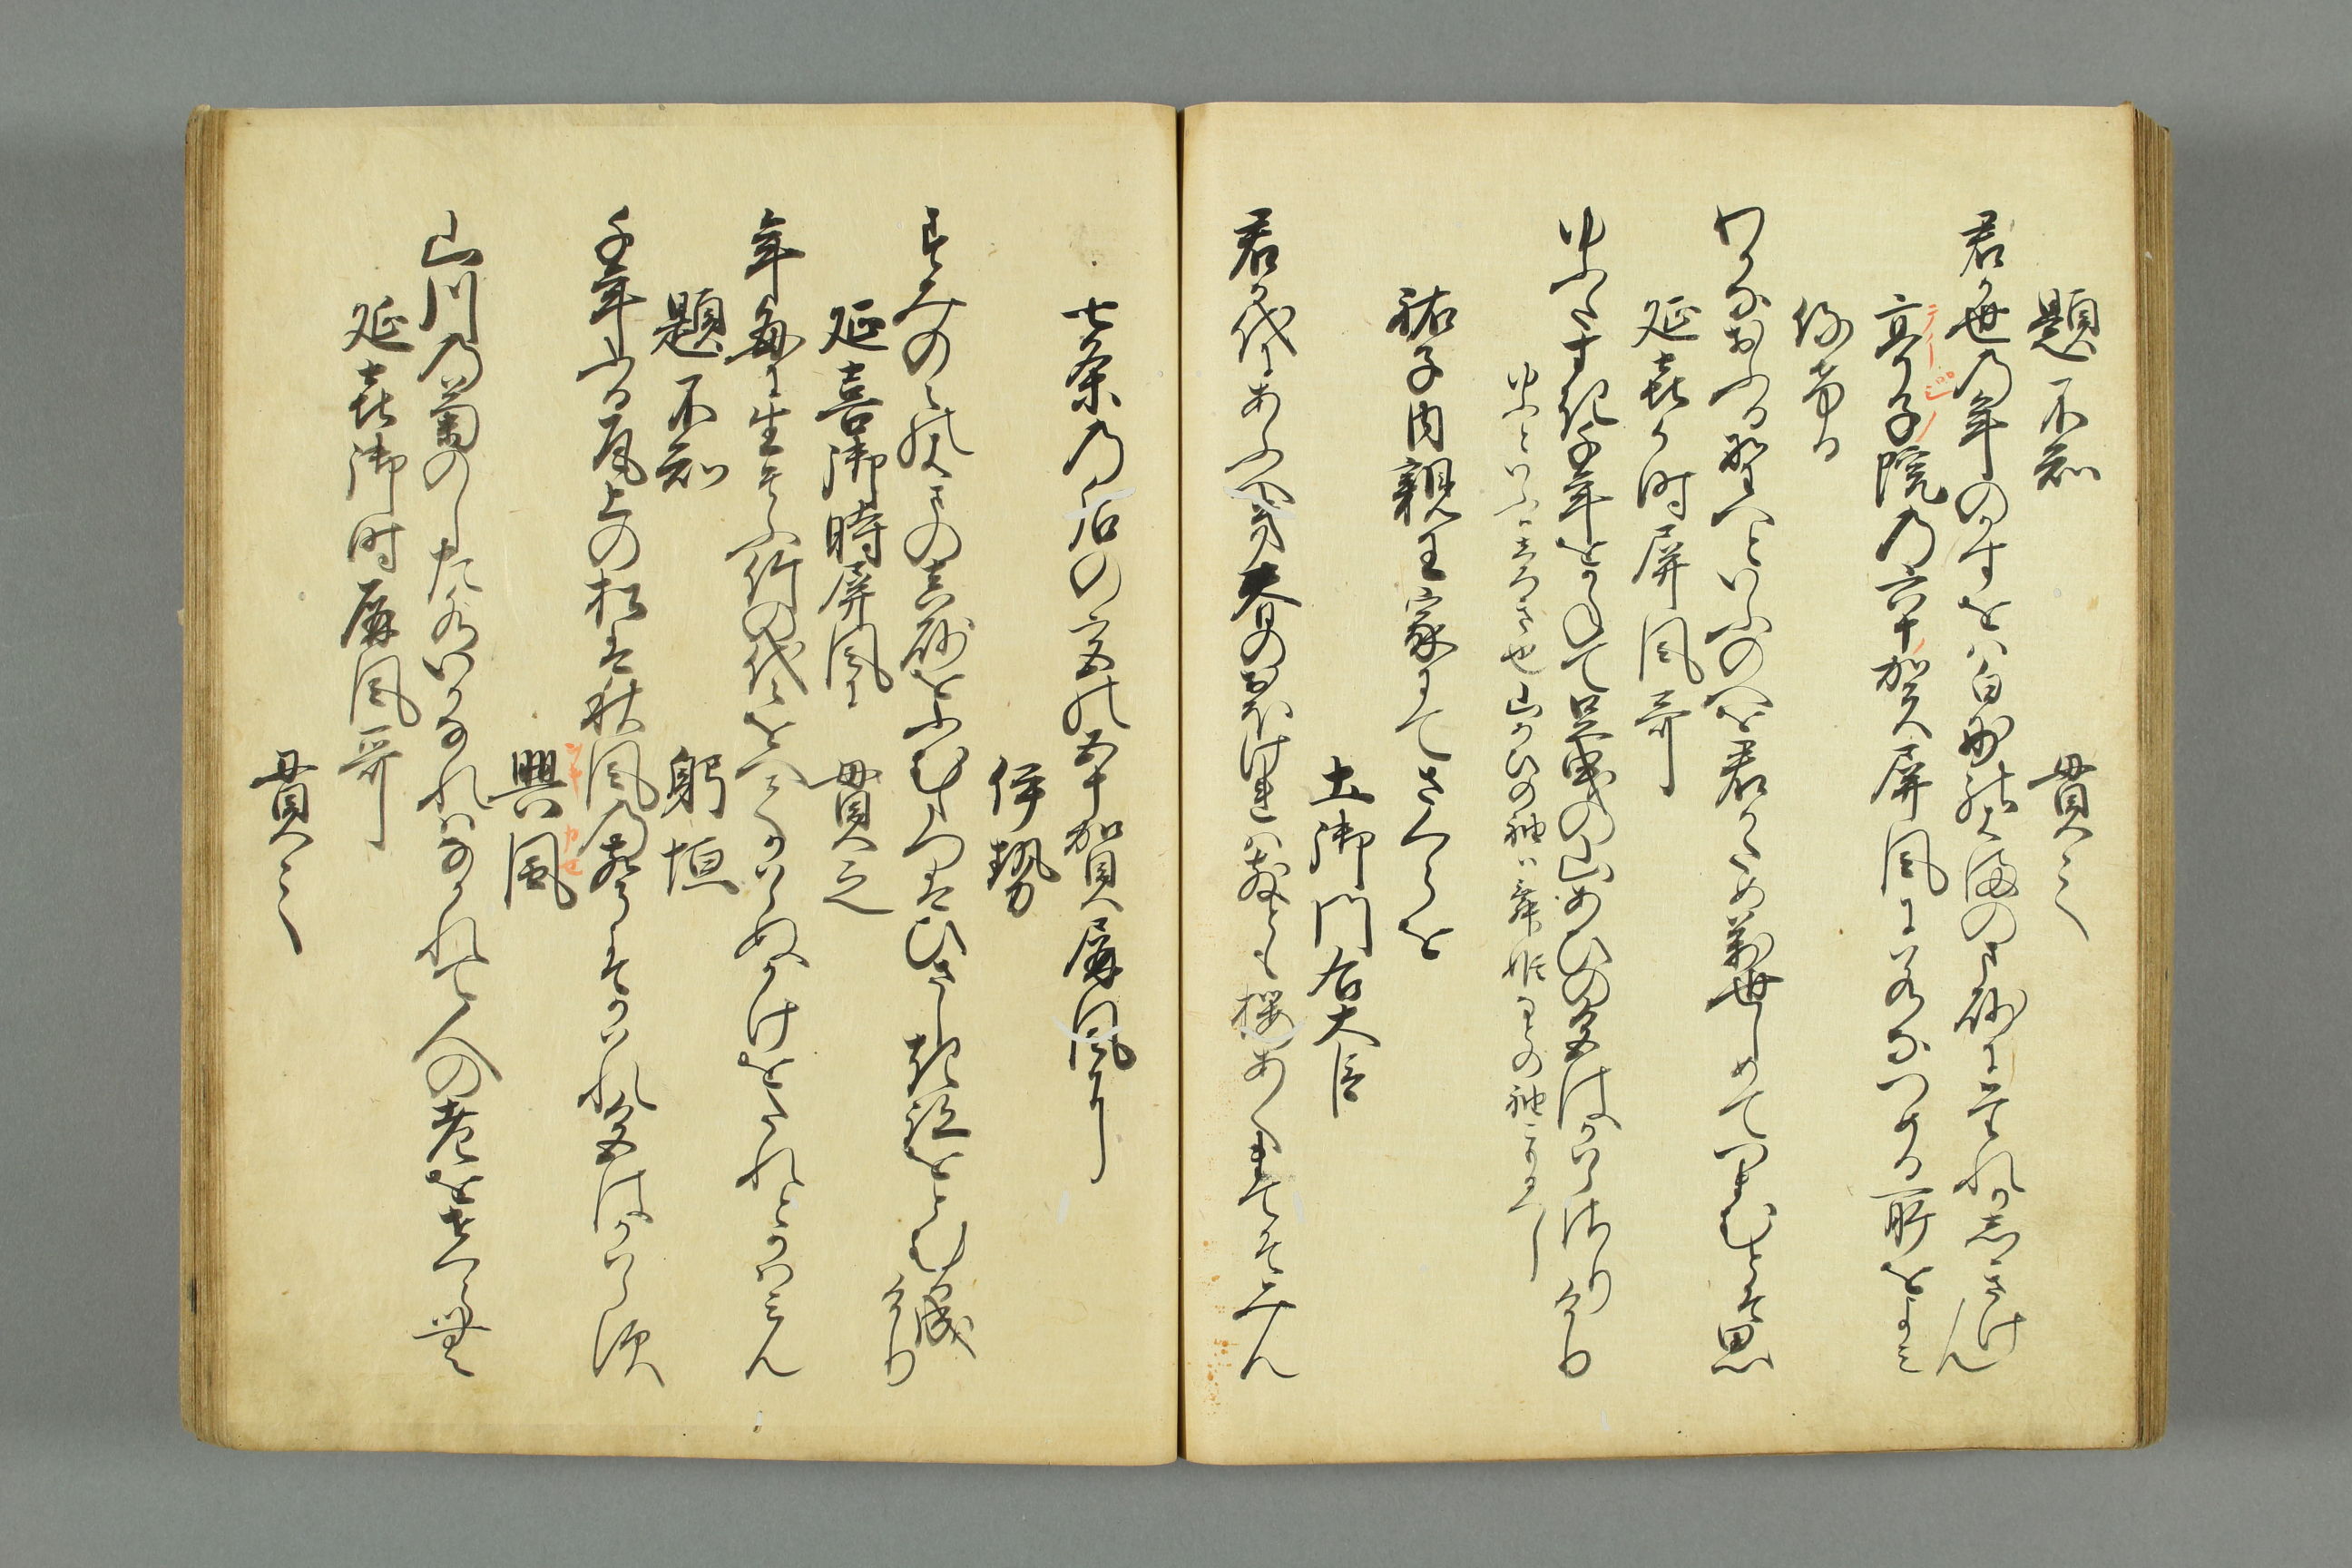 題不知
貫之
君か世の年のかすをは白妙のはまの真砂とたれかしきけん
亭子院の六十賀屏風にわかなつめる所をよみ
侍ける
わかなおふる野へといふのへを君かため萬世しめてつまむとそ思
延喜御時屏風哥
ゆふたすき千年をかけて足曳の山あひの色はかはらさりけり
祐子内親王家にてさくらを
土御門右大臣
君か代にあふへき春のおほけれはちるとも桜あくまてそみん
七条の后の宮の五十賀屏風に
伊勢
すみのえのはまの真砂をふむたつはひさしき跡をとむる成けり
延喜御時屏風に
貫之
年毎に生そふ竹の代々をへてかはらぬ色をたれとかはみん
題不知
躬恒
千年ふる尾上の松は秋風の声こそかはれ色はかはらす
興風
山川の菊のした水いかなれはなかれて人の老をせくらむ
延喜御時屏風哥
貫之